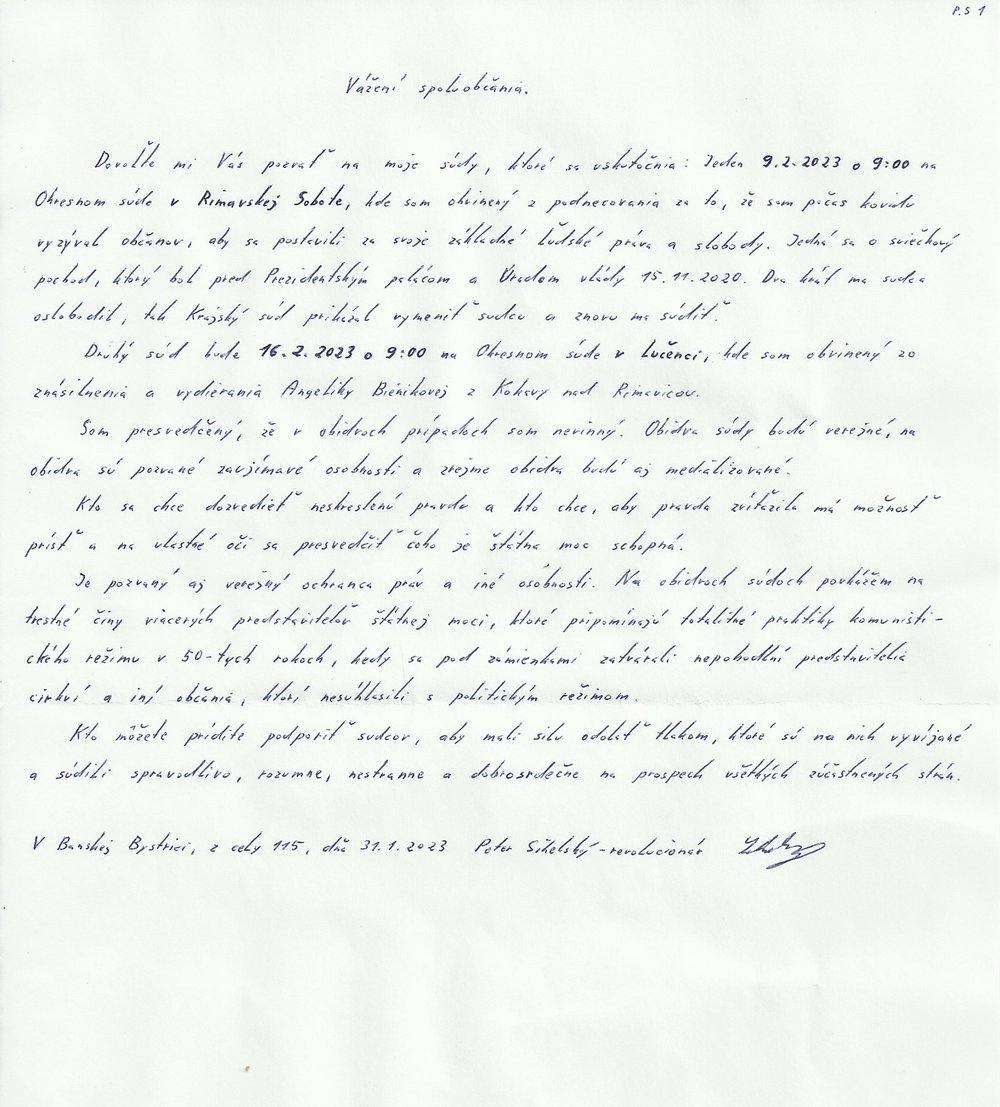 P.S 1
Vážení spoluobčania.
Dovoľte mi Vás pozvať na moje súdy, ktoré sa uskutočnia: Jeden 9.2.2023 o 9:00 na
Okresnom súde v Rimavskej Sobote, kde som obvinený z podnecovania za to, že som počas kovidu
vyzýval občanov, aby sa postavili za svoje základné ľudské práva a slobody. Jedná sa o sviečkový
pochod, ktorý bol pred Prezidentským palácom a Úradom vlády 15.11.2020. Dva krát ma sudca
oslobodil, tak Krajský súd prikázal vymeniť sudcu a znovu ma súdiť.
Druhý súd bude 16.2.2023 o 9:00 na Okresnom súde v Lučenci, kde som obvinený zo
znásilnenia a vydierania Angeliky Bienikovej z Kokavy nad Rimavicou.
Som presvedčený, že v obidvoch prípadoch som nevinný. Obidva súdy budú verejné, na
obidva sú pozvané zaujímavé osobnosti a zrejme obidva budú aj medializované.
Kto sa chce dozvedieť neskreslenú pravdu a kto chce, aby pravda zvíťazila má možnosť
prísť a na vlastné oči sa presvedčiť čoho je štátna moc schopná.
Je pozvaný aj verejný ochranca práv a iné osobnosti. Na obidvoch súdoch poukážem na
trestné činy viacerých predstaviteľov štátnej moci, ktoré pripomínajú totalitné praktiky komunisti-
ckého režimu v 50-tych rokoch, kedy sa pod zámienkami zatvárali nepohodlní predstavitelia
cirkví a iní občania, ktorí nesúhlasili s politickým režimom.
Kto môžete prídite podporiť sudcov, aby mali silu odolať tlakom, ktoré sú na nich vyvíjané
a súdili spravodlivo, rozumne, nestranne a dobrosrdečne na prospech všetkých zúčastnených strán.
V Banskej Bystrici, z cely 115, dňa 31.1.2023 Peter Sihelský - revolucionár